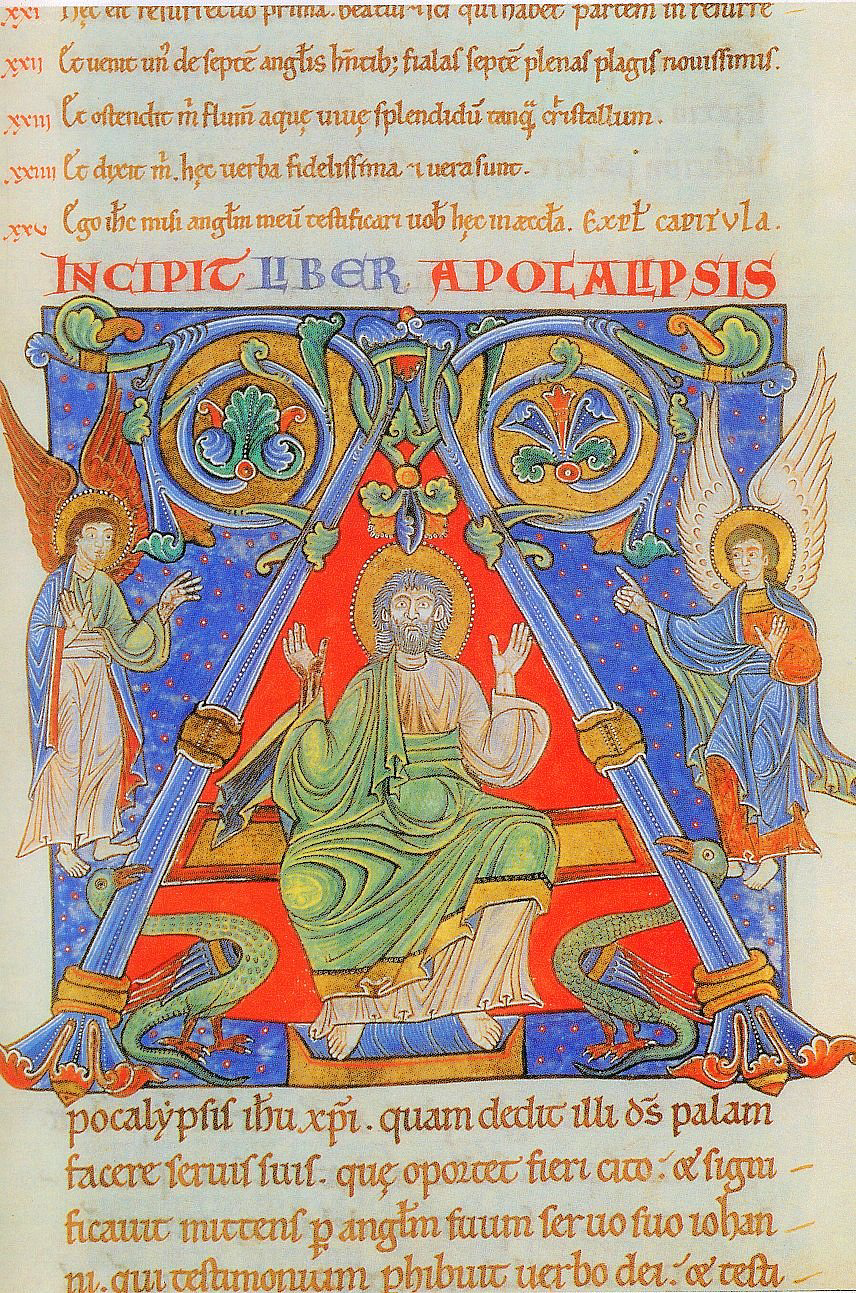 xxi Hęc est resurrectio prima. beatus ⁊ sc̄s qui habet partem in resurre
xxii Et uenit un' de septē angl̄is hn̄tib; fialas septē plenas plagis nouissimis.
xxiii Et ostendit m̄ flum̄ aquę uiuę splendidū tanq̄ cristallum.
xxiiii Et dixit m̄. hęc uerba fidelissima ⁊ uera sunt.
xxv Ego ih̄c misi angl̄m meū testificari uob̄ hęc in æccl̄a. Expl̄ capitula.
INCIPIT LIBER APOCALIPSIS
A
pocalẏpsis ih̄u xp̄i. quam dedit illi d̄s palam
facere seruis suis. quę oportet fieri cito. & signi
ficauit mittens p̱ angl̄m suum seruo suo iohan
ni. qui testimonium phibuit uerbo dei. & testi